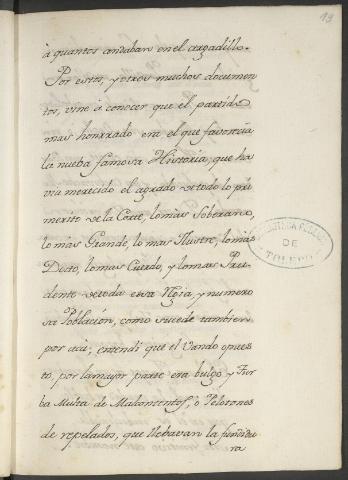 19
à quantos andaban en el argadillo.
Por estos, y otros muchos documen
tos, vine à conocer que el partido
mas honrrado era el que favorecia
la nueba famosa Historia, que ha
via merecido el agrado de todo lo pri
merito de la Corte, lo mas Soberano,
lo mas Grande, lo mas Ilustre, lo mas
Docto, lo mas Cuerdo, y lo mas Pru
dente de toda esa Regia, y numero
sa Poblacion, como sucede tambien
por acà; entendi que el Vando opues
to, por la mayor parte era bulgo, y Tur
ba Multa de Malcontentos, ò Pelotones
de repelados, que llebavan la
ra
BIBLIOTECA PUBLICA
DE
TOLEDO